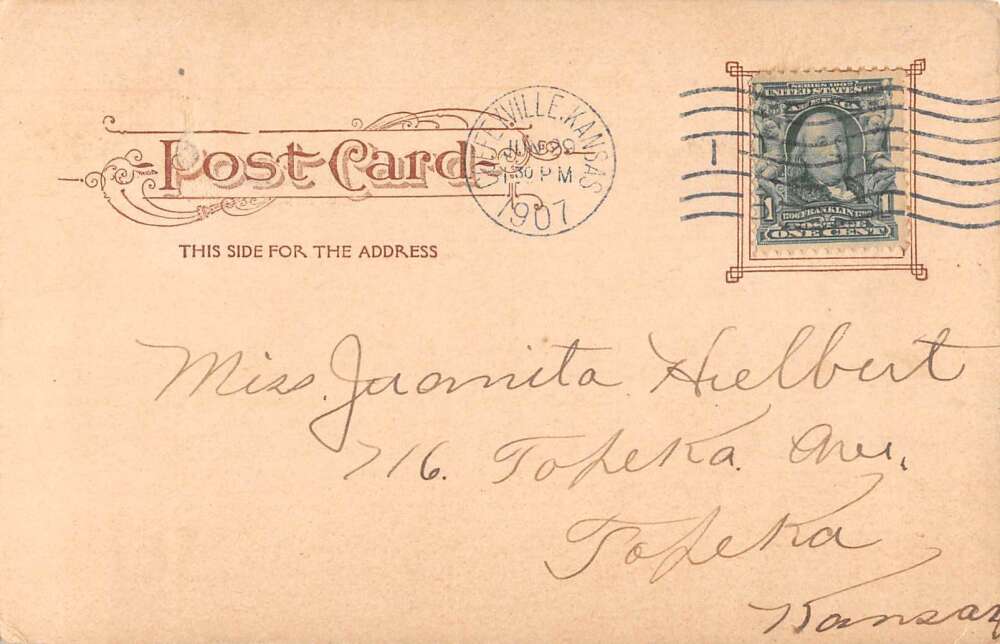 Post Card
THIS SIDE FOR THE ADDRESS
COFFEYVILLE. KANSAS
JUN 29
30 PM
1907
1
SERIES 1902
UNITED STATES OF AMERICA
1 1
1706 FRANKLIN 1790
POSTAGE
ONE CENT
Miss. Juanita Hulbert
716. Topeka. Ave.
Topeka
Kansas